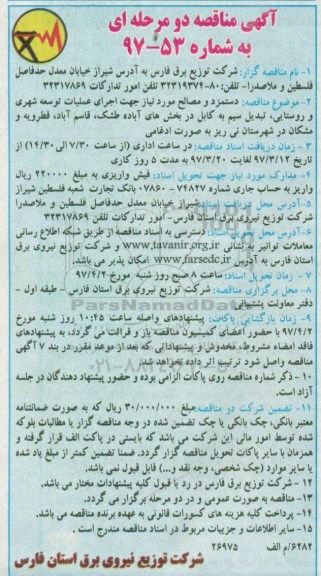 آگهی مناقصه دو مرحله ای
به شماره ۵۳-۹۷
۱- نام مناقصه گزار: شرکت توزیع برق فارس به آدرس شیراز خیابان معدل حدفاصل
فلسطین و ملاصدرا- تلفن: ۸۰-۳۲۳۱۹۳۷۴ تلفن امور تدارکات ۳۲۳۱۷۸۶۹
۲-موضوع مناقصه: دستمزد و مصالح مورد نیاز جهت اجرای عملیات توسعه شهری
و روستایی، تبدیل سیم به کابل در بخش های آباده طشک، قاسم آباد، قطرویه و
مشکان در شهرستان نی ریز به صورت ادغامی
۳- زمان دریافت اسناد مناقصه: در ساعت اداری (از ساعت ۷/۳۰ الی ۱۴/۳۰) از
تاریخ ۹۷/۳/۱۲ لغایت ۹۷/۳/۲۰ به مدت ۵ روز کاری
۴- مدارک مورد نیاز جهت تحویل اسناد: فیش واریزی به مبلغ ۲۲۰۰۰۰ ریال
واریز به حساب جاری شماره ۷۴۸۲۷-۰۷۸۶۰ بانک تجارت شعبه فلسطین شیراز
۵-آدرس محل دریافت اسناد: شیراز خیابان معدل حدفاصل فلسطین و ملاصدرا
شرکت توزیع نیروی برق استان فارس- امور تدارکات تلفن ۳۲۳۱۷۸۶۹
۶-آدرس محل تحویل اسناد: دسترسی به اسناد مناقصه از طریق شبکه اطلاع رسانی
معاملات توانیر به نشانی www.tavanir.org.ir و شرکت توزیع نیروی برق
استان فارس به آدرس www.farsedc.ir امکان پذیر می باشد.
۷- زمان تحویل اسناد: ساعت ۸ صبح روز شنبه مورخ ۹۷/۴/۲
۸- محل برگزاری مناقصه: شرکت توزیع نیروی برق استان فارس - طبقه اول -
دفتر معاونت پشتیبانی
۹- زمان بازگشایی پاکات: پیشنهادهای واصله ساعت ۱۰:۴۵ روز شنبه مورخ
۹۷/۴/۲ با حضور اعضای کمیسیون مناقصه باز و قرائت می گردد، به پیشنهادهای
فاقد امضاء مشروط، مخدوش و پیشنهاداتی که بعد از موعد مقرر در بند ۷ آگهی
مناقصه واصل شود ترتیب اثر داده نخواهد شد.
۱۰- ذکر شماره مناقصه روی پاکات الزامی بوده و حضور پیشنهاد دهندگان در جلسه
آزاد است.
۱۱- تضمین شرکت در مناقصه: مبلغ ۳۰/۰۰۰/۰۰۰ ریال که به صورت ضمانتنامه
معتبر بانکی، چک بانکی یا چک تضمین شده در وجه مناقصه گزار یا مطالبات بلوکه
شده توسط امور مالی این شرکت می باشد که بایستی در پاکت الف قرار گرفته و
همزمان با سایر پاکات تحویل مناقصه گزار گردد. ضمنا تضمین کمتر از مبلغ یاد شده
یا سایر موارد (چک شخصی، وجه نقد و...) قابل قبول نمی باشد.
۱۲- شرکت توزیع برق فارس در رد یا قبول کلیه پیشنهادات مختار می باشد.
۱۳- مناقصه به صورت عمومی و در دو مرحله برگزار می گردد.
۱۴- پرداخت کلیه هزینه های کسورات قانونی به عهده برنده مناقصه می باشد.
۱۵- سایر اطلاعات و جزییات مربوط در اسناد مناقصه مندرج است.
۶۲۸۲/م الف ۲۶۹۷۵
شرکت توزیع نیروی برق استان فارس